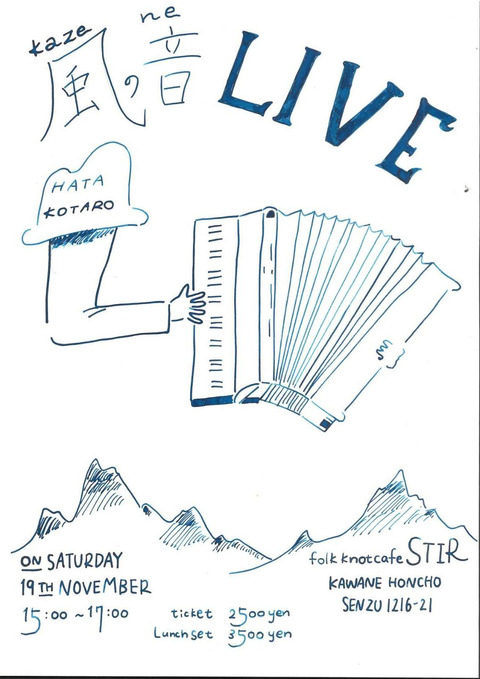 kaze ne
風の音 LIVE
HATA
KOTARO
ON SATURDAY
19TH NOVEMBER
15:00 ~ 17:00
ticket 2500 yen
Lunch set 3500 yen
folk knot cafe STIR
KAWANE HONCHO
SENZU 1216-21